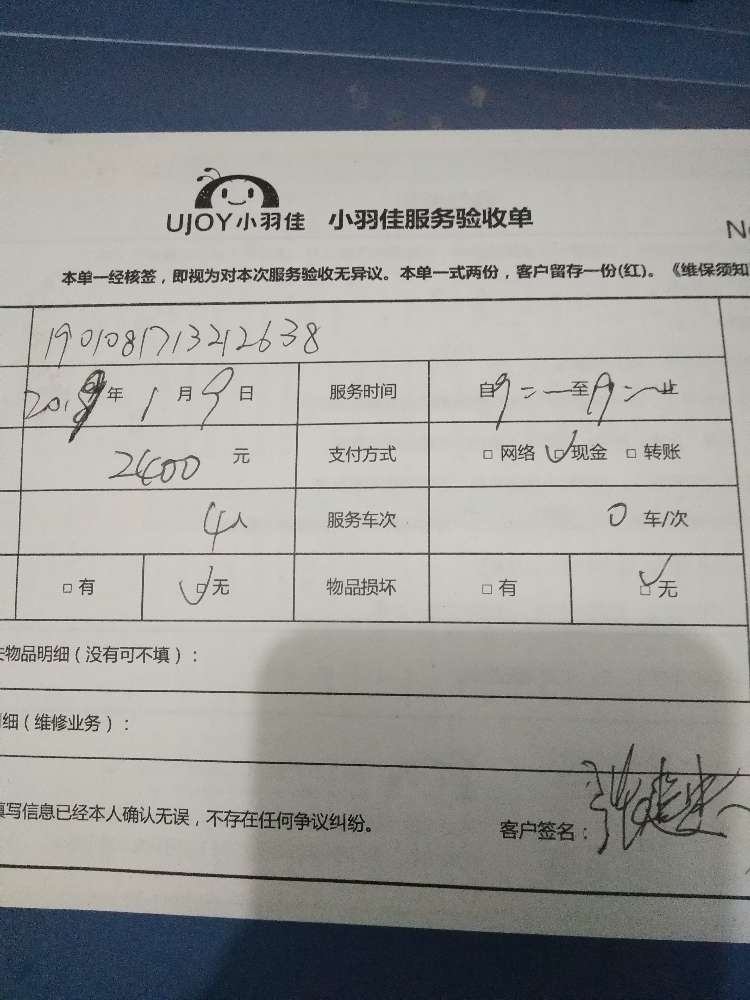 UJOY小羽佳 小羽佳服务验收单
本单一经核签，即视为对本次服务验收无异议。本单一式两份，客户留存一份(红)。《维保须知
190108171321 2638
2019年1月9日 服务时间 自 至 止
2400元 支付方式 □网络 ☑现金 □转账
4人 服务车次 0车/次
□有 ☑无 物品损坏 □有 ☑无
物品明细（没有可不填）：
细（维修业务）：
填写信息已经本人确认无误，不存在任何争议纠纷。
客户签名：